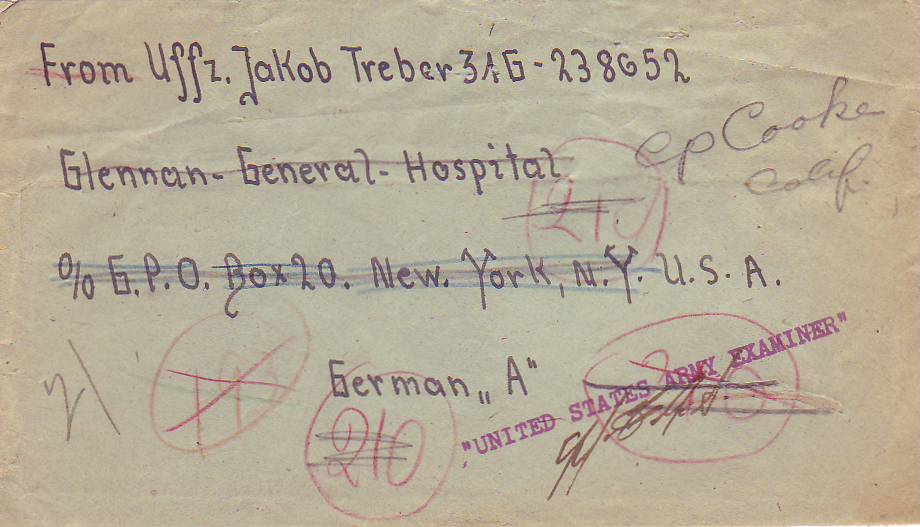 From Uffz. Jakob Treber 31G-238652
cp Cooke
Calif.
Glennan-General-Hospital
210
% G.P.O. Box 20. New. York, N.Y. U.S.A.
German „A"
"UNITED STATES ARMY EXAMINER"
210